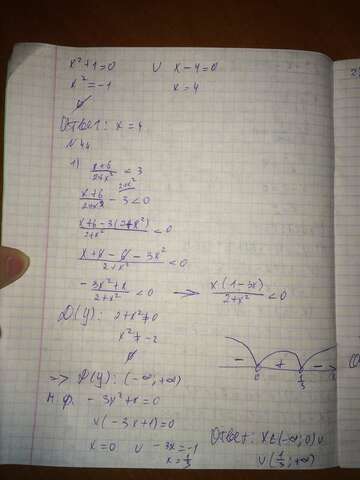 x²+1=0 ∪ x-4=0
x²=-1 x=4
∅
Ответ: x=4
N 44
1) x+6/2+x² < 3
x+6/2+x² - 3 < 0
x+6-3(2+x²)/2+x² < 0
x+6-6-3x²/2+x² < 0
-3x²+x/2+x² < 0 → x(1-3x)/2+x² < 0
D(y): 2+x²≠0
x²≠-2
∅
- + -
0 1/3
=> D(y): (-∞;+∞)
н.ф. -3x²+x=0
x(-3x+1)=0
x=0 ∪ -3x=-1
x=1/3
Ответ: x∈(-∞;0)∪
∪(1/3;+∞)